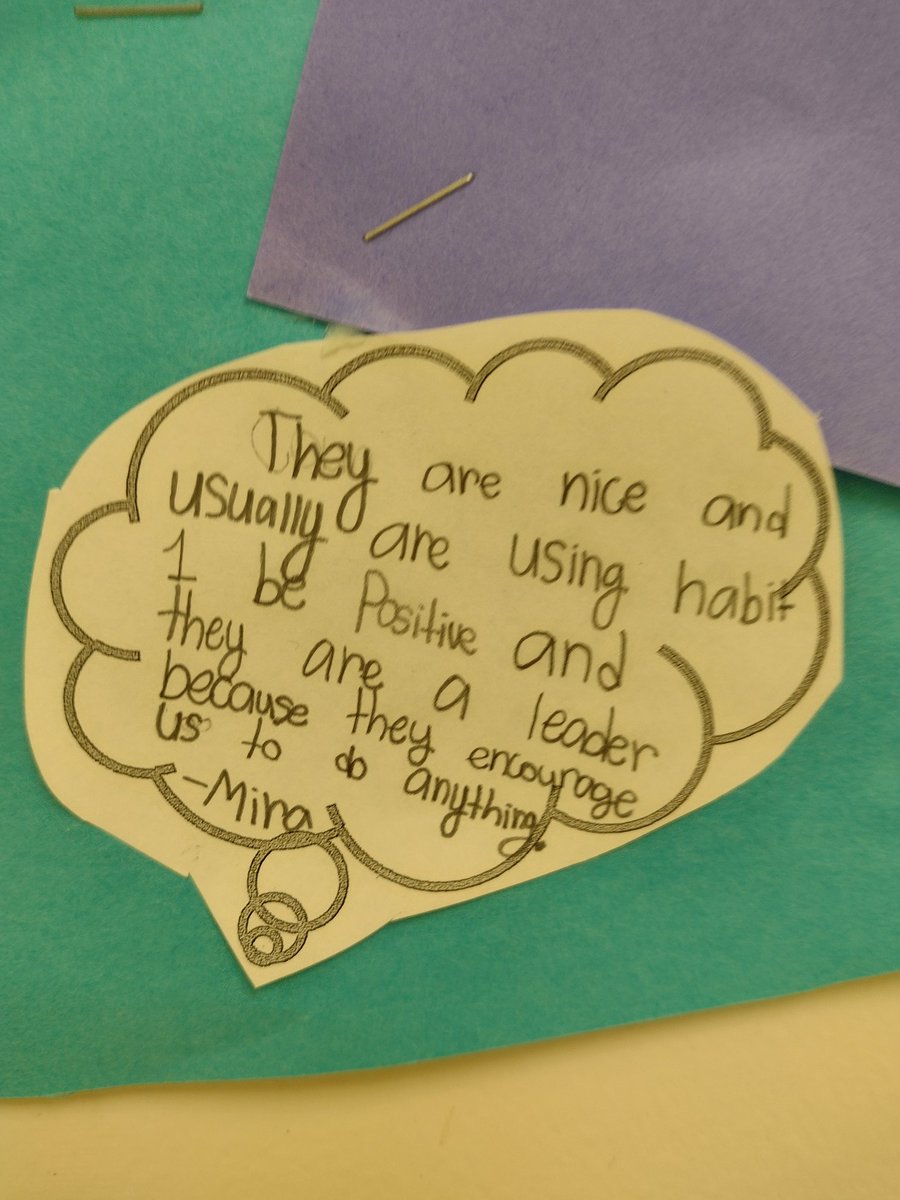 They are nice and
usually are using habit
1 be Positive and
they are a leader
because they encourage
us to do anything.
-Mina